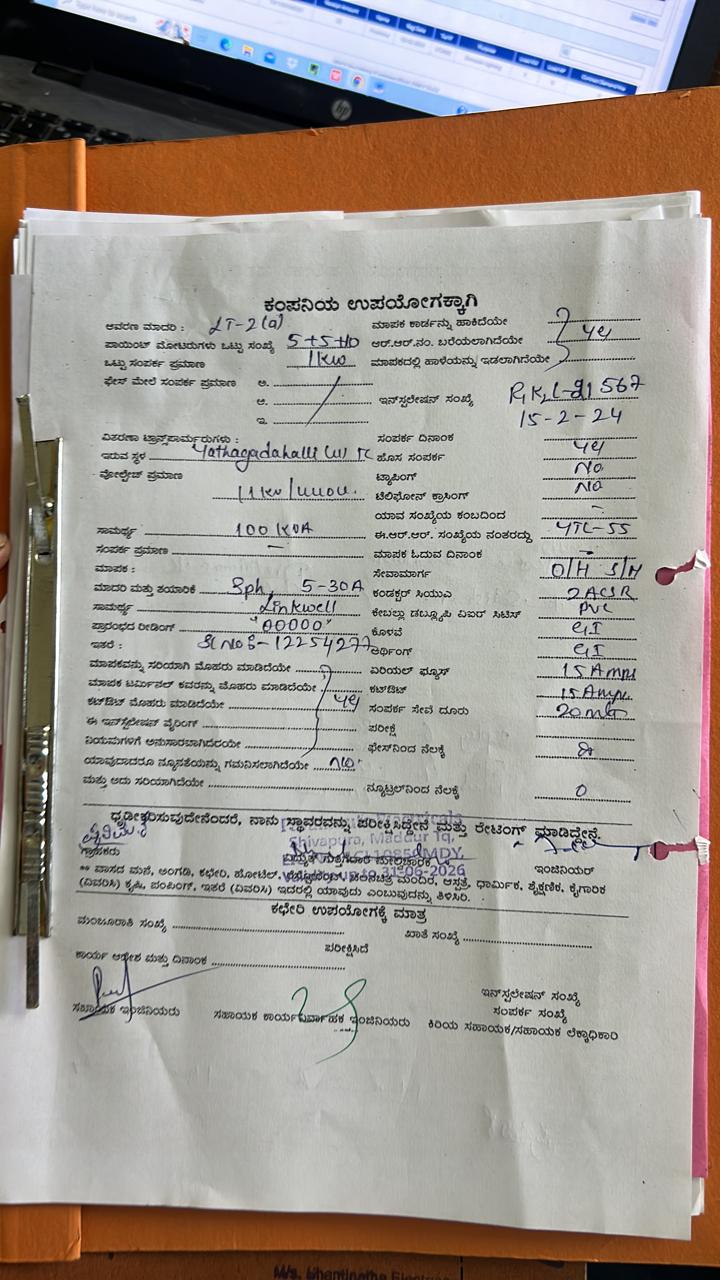 Type here to search
hp
ಕಂಪನಿಯ ಉಪಯೋಗಕ್ಕಾಗಿ
ಆವರಣ ಮಾದರಿ : LT-2(a) ಮಾಪಕ ಕಾರ್ಡನ್ನು ಹಾಕಿದೆಯೇ
ಪಾಯಿಂಟ್ ಮೋಟರುಗಳು ಒಟ್ಟು ಸಂಖ್ಯೆ 5+5+10 ಆರ್.ಆರ್.ನಂ. ಬರೆಯಲಾಗಿದೆಯೇ
ಒಟ್ಟು ಸಂಪರ್ಕ ಪ್ರಮಾಣ 1kw ಮಾಪಕದಲ್ಲಿ ಹಾಳೆಯನ್ನು ಇಡಲಾಗಿದೆಯೇ
ಫೇಸ್ ಮೇಲೆ ಸಂಪರ್ಕ ಪ್ರಮಾಣ ಅ.
ಆ. ಇನ್‌ಸ್ಟಲೇಷನ್ ಸಂಖ್ಯೆ
ಇ. 15-2-24
ವಿತರಣಾ ಟ್ರಾನ್ಸ್‌ಫಾರ್ಮರುಗಳು : ಸಂಪರ್ಕ ದಿನಾಂಕ
ಇರುವ ಸ್ಥಳ Yathagadahalli ಹೊಸ ಸಂಪರ್ಕ
ವೋಲ್ಟೇಜ್ ಪ್ರಮಾಣ ಟ್ಯಾಪಿಂಗ್ NO
ಟೆಲಿಫೋನ್ ಕ್ರಾಸಿಂಗ್ NO
ಯಾವ ಸಂಖ್ಯೆಯ ಕಂಬದಿಂದ -
ಸಾಮರ್ಥ್ಯ 100 KVA ಈ.ಆರ್.ಆರ್. ಸಂಖ್ಯೆಯ ನಂತರದ್ದು YTL-55
ಸಂಪರ್ಕ ಪ್ರಮಾಣ - ಮಾಪಕ ಓದುವ ದಿನಾಂಕ -
ಮಾಪಕ : ಸೇವಾಮಾರ್ಗ O/H S/M
ಮಾದರಿ ಮತ್ತು ತಯಾರಿಕೆ 3ph, 5-30A ಕಂಡಕ್ಟರ್ ಸಿಯುಎ 2 ACSR
ಸಾಮರ್ಥ್ಯ Linkwell ಕೇಬಲ್ಲು ಡಬ್ಲ್ಯೂಪಿ ವಿಐಆರ್ ಸಿಟಿಸ್ PVC
ಪ್ರಾರಂಭದ ರೀಡಿಂಗ್ "00000" ಕೊಳವೆ GI
ಇತರೆ : Sl No:- 12254277 ಅರ್ಥಿಂಗ್ GI
ಮಾಪಕವನ್ನು ಸರಿಯಾಗಿ ಮೊಹರು ಮಾಡಿದೆಯೇ ಏರಿಯಲ್ ಫ್ಯೂಸ್ 15 Amps
ಮಾಪಕ ಟರ್ಮಿನಲ್ ಕವರನ್ನು ಮೊಹರು ಮಾಡಿದೆಯೇ ಕಟ್‌ಔಟ್ 15 Amps
ಕಟ್‌ಔಟ್ ಮೊಹರು ಮಾಡಿದೆಯೇ ಸಂಪರ್ಕ ಸೇವೆ ದೂರು
ಈ ಇನ್‌ಸ್ಟಲೇಷನ್ ವೈರಿಂಗ್ ಪರೀಕ್ಷೆ
ನಿಯಮಗಳಿಗೆ ಅನುಸಾರವಾಗಿದೆಯೇ ಫೇಸ್‌ನಿಂದ ನೆಲಕ್ಕೆ
ಯಾವುದಾದರೂ ನ್ಯೂನತೆಯನ್ನು ಗಮನಿಸಲಾಗಿದೆಯೇ NO
ಮತ್ತು ಅದು ಸರಿಯಾಗಿದೆಯೇ ನ್ಯೂಟ್ರಲ್‌ನಿಂದ ನೆಲಕ್ಕೆ 0
ಧೃಢೀಕರಿಸುವುದೇನೆಂದರೆ, ನಾನು ಸ್ಥಾವರವನ್ನು ಪರೀಕ್ಷಿಸಿದ್ದೇನೆ ಮತ್ತು ರೇಟಿಂಗ್ ಮಾಡಿದ್ದೇನೆ.
Shivapura, Maddur Tq,
ಗ್ರಾಹಕರು ಇಂಜಿನಿಯರ್
31-06-2026
** ವಾಸದ ಮನೆ, ಅಂಗಡಿ, ಕಛೇರಿ, ಹೋಟೆಲ್, ಚಲನಚಿತ್ರ ಮಂದಿರ, ಆಸ್ಪತ್ರೆ, ಧಾರ್ಮಿಕ, ಶೈಕ್ಷಣಿಕ, ಕೈಗಾರಿಕೆ
(ವಿವರಿಸಿ) ಕೃಷಿ, ಪಂಪಿಂಗ್, ಇತರೆ (ವಿವರಿಸಿ) ಇದರಲ್ಲಿ ಯಾವುದು ಎಂಬುವುದನ್ನು ತಿಳಿಸಿರಿ.
ಕಛೇರಿ ಉಪಯೋಗಕ್ಕೆ ಮಾತ್ರ
ಮಂಜೂರಾತಿ ಸಂಖ್ಯೆ ಖಾತೆ ಸಂಖ್ಯೆ
ಪರೀಕ್ಷಿಸಿದೆ
ಕಾರ್ಯ ಆದೇಶ ಮತ್ತು ದಿನಾಂಕ
ಇನ್‌ಸ್ಟಲೇಷನ್ ಸಂಖ್ಯೆ
ಸಂಪರ್ಕ ಸಂಖ್ಯೆ
ಸಹಾಯಕ ಇಂಜಿನಿಯರು ಸಹಾಯಕ ಕಾರ್ಯನಿರ್ವಾಹಕ ಇಂಜಿನಿಯರು ಕಿರಿಯ ಸಹಾಯಕ/ಸಹಾಯಕ ಲೆಕ್ಕಾಧಿಕಾರಿ